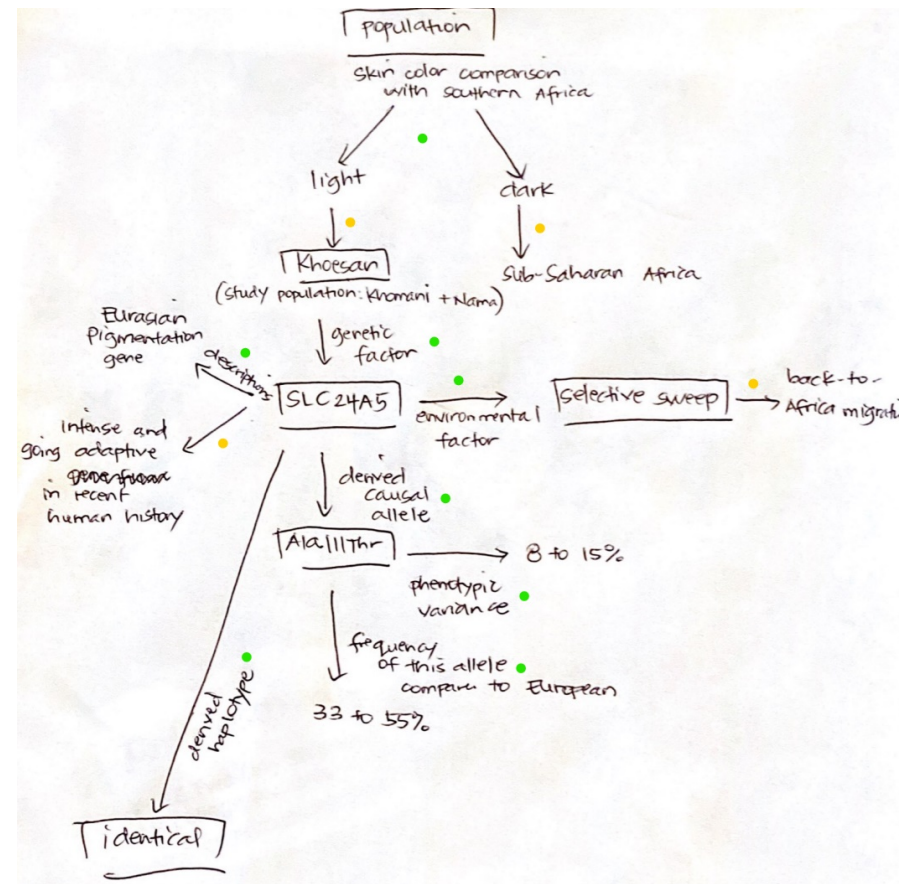 population
skin color comparison
with southern Africa
light
dark
Khoesan
(study population: Khomani + Nama)
Sub-Saharan Africa
genetic
factor
Eurasian
pigmentation
gene
description
SLC24A5
environmental
factor
selective sweep
back-to-
Africa migrati
intense and
going adaptive
in recent
human history
derived
causal
allele
Ala111Thr
8 to 15%
phenotypic
variance
frequency
of this allele
compare to European
33 to 55%
derived
haplotype
identical